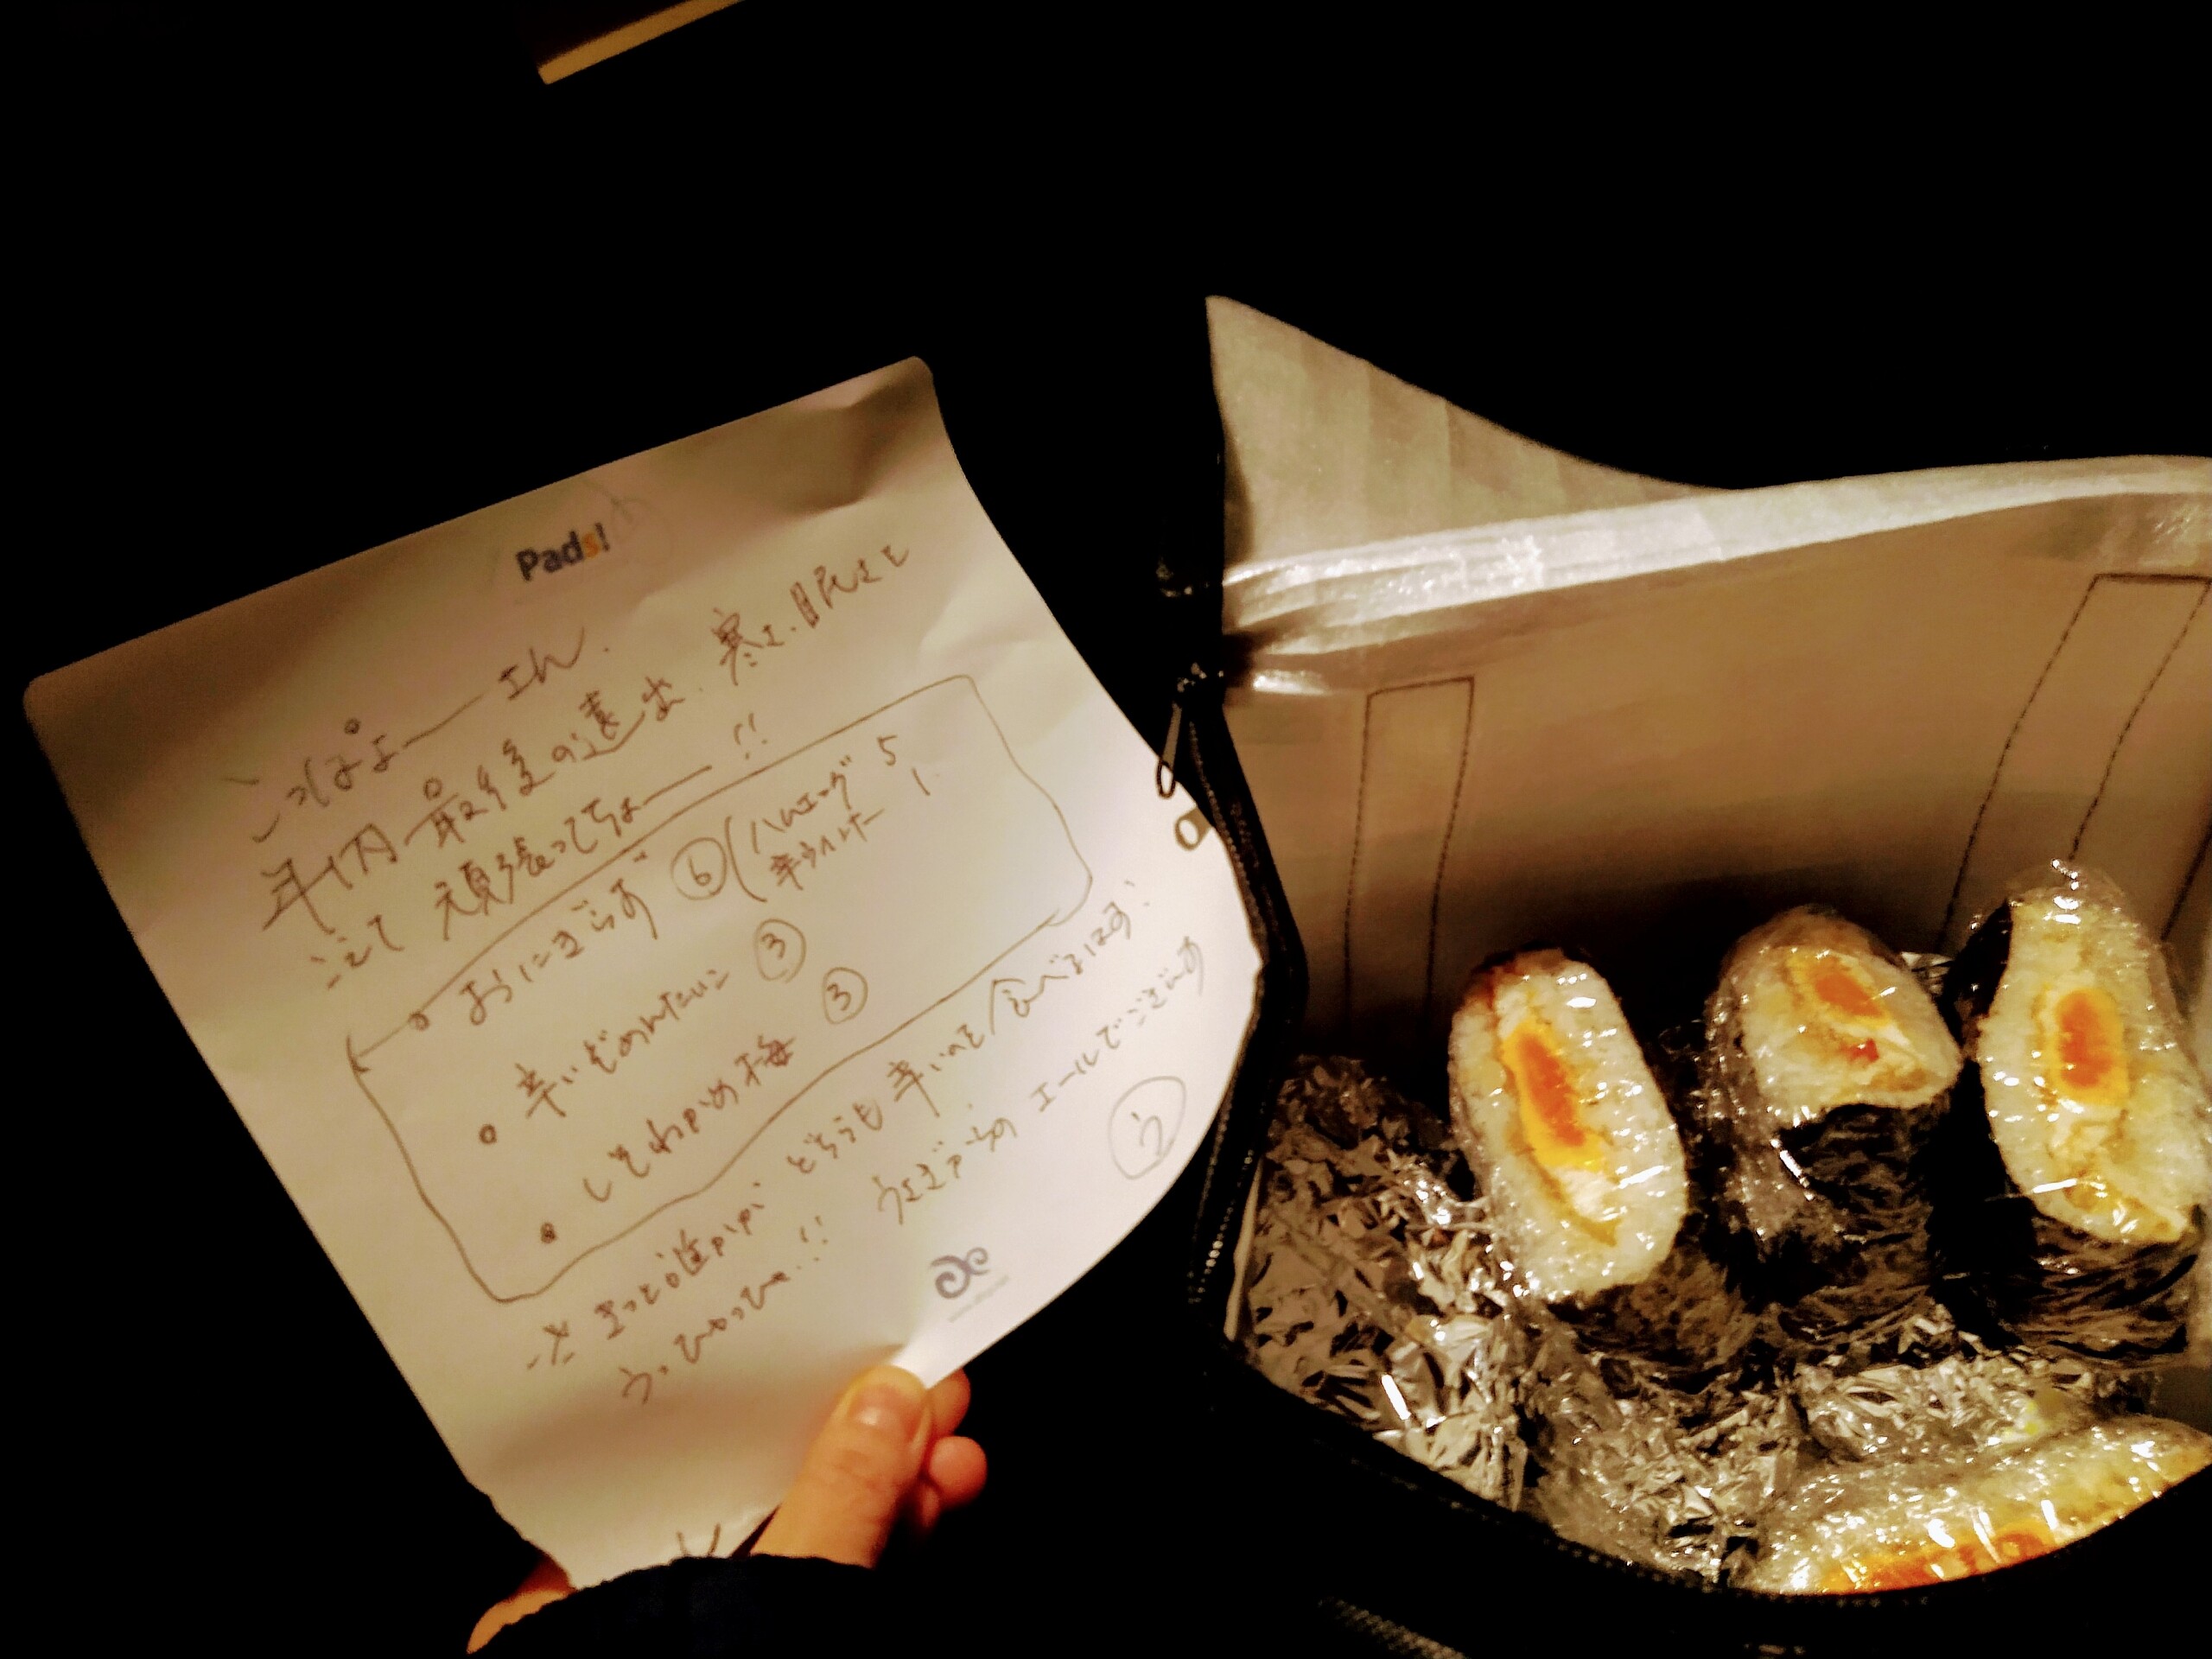 Pads!
こっぽよーエん.
年内最後の遠出. 寒さ. 眠さと
こえて 頑張ってちょー!!
おにぎらず ⑥ (ハムエッグ 5
辛ウインナー 1
辛いぞめんたいこ ③
しそわかめ梅 ③
※ きっと誰かが どちらも 辛いのを食べるはず.
うっひゃっひゃ..!! うさぎアースの エールでございます
う